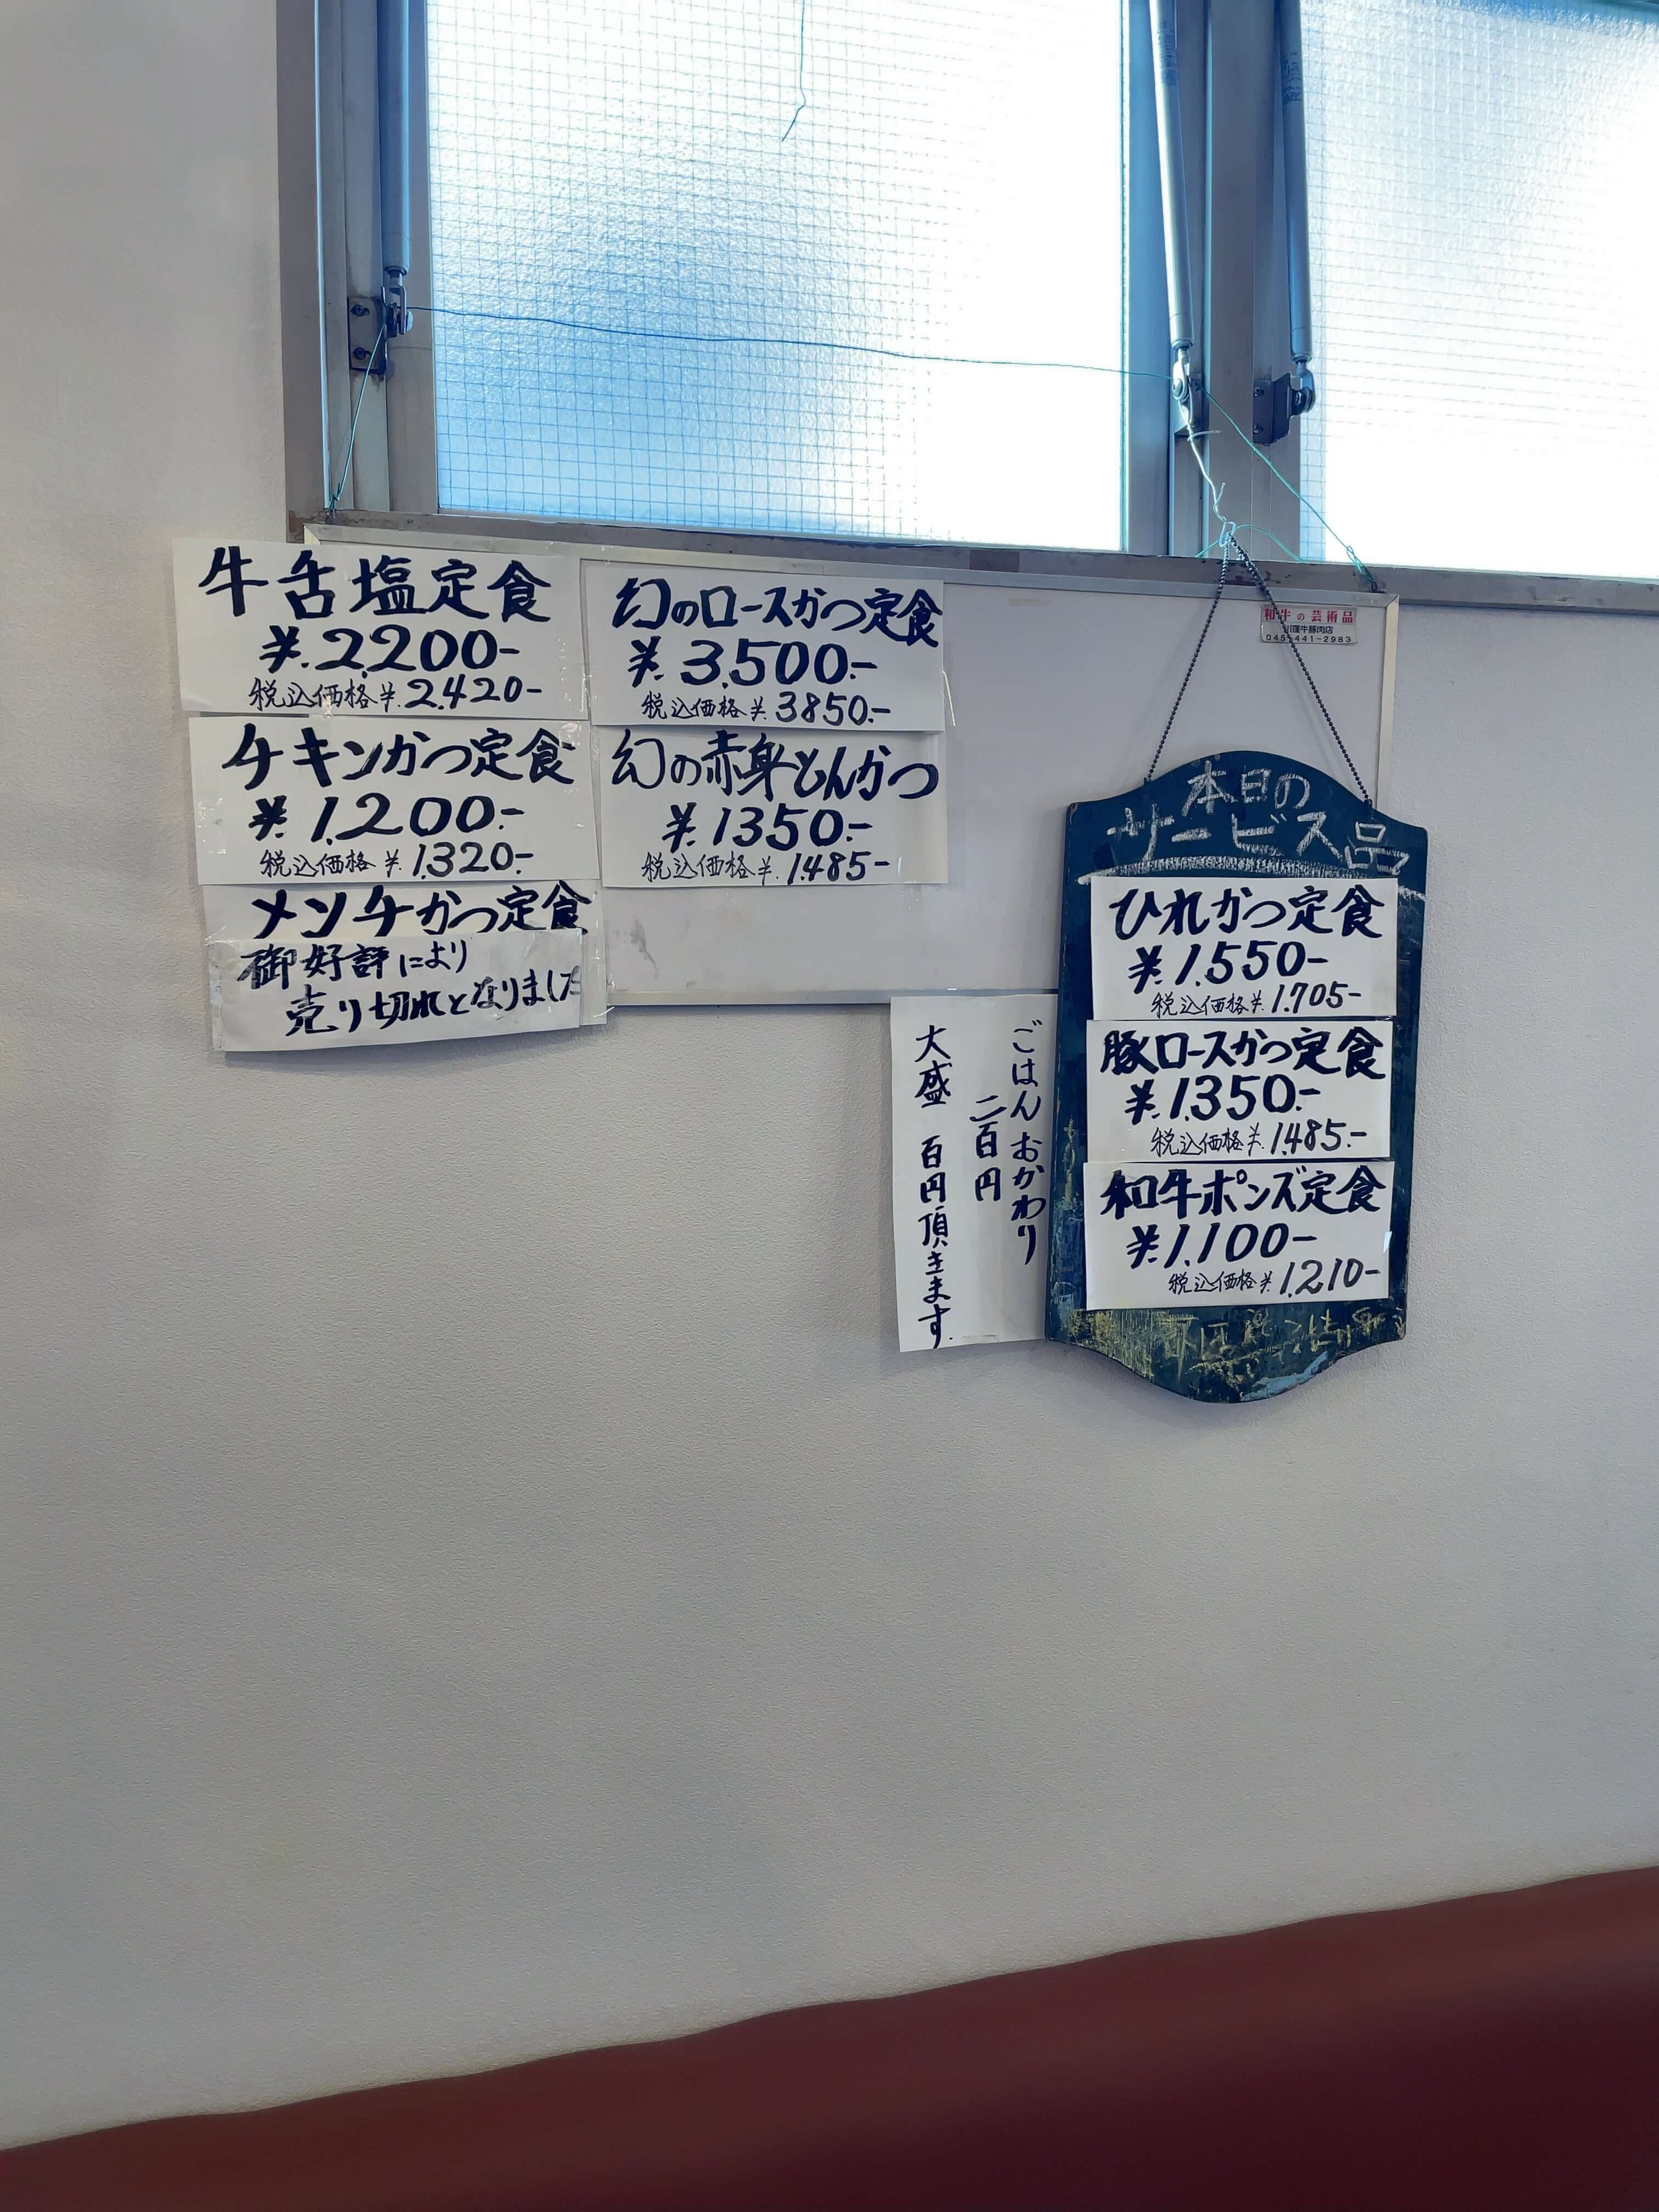 牛舌塩定食
¥.2200-
税込価格¥.2.420-
チキンかつ定食
¥.1.200.-
税込価格¥.1.320.-
メンチかつ定食
御好評により
売り切れとなりました
幻のロースかつ定食
¥.3.500.-
税込価格¥.3850.-
幻の赤身とんかつ
¥.1350.-
税込価格¥.1.485-
和牛の芸術品
川窪牛豚肉店
045-441-2983
ごはんおかわり
二百円
大盛 百円頂きます.
本日の
サービス品
ひれかつ定食
¥.1.550-
税込価格¥.1.705-
豚ロースかつ定食
¥.1.350.-
税込価格¥.1.485.-
和牛ポンズ定食
¥.1.100-
税込価格¥.1.210-